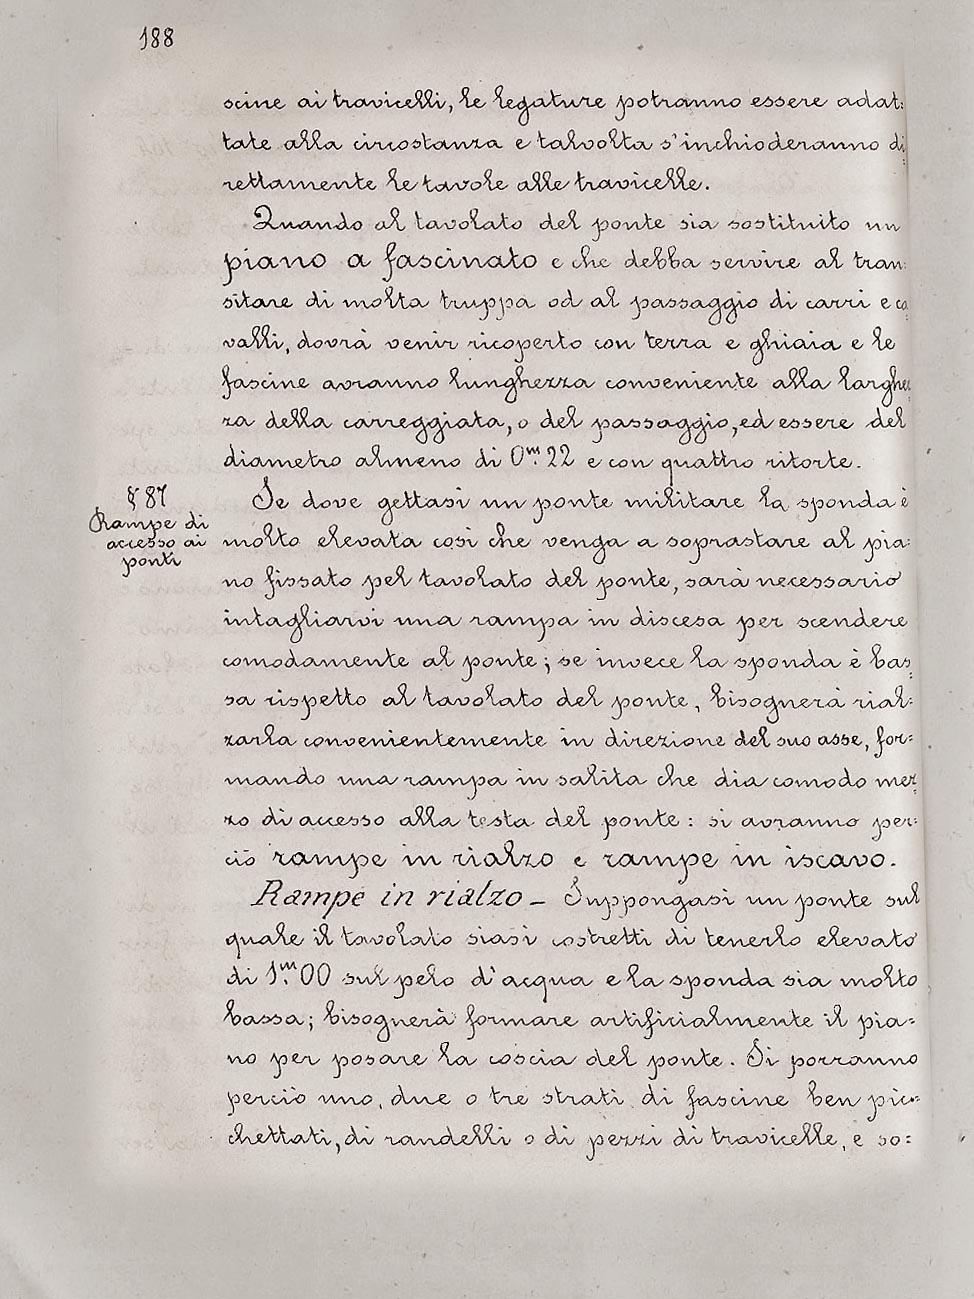 188
scine ai travicelli, le legature potranno essere adat:
tate alla circostanza e talvolta s'inchioderanno di
rettamente le tavole alle travicelle.
Quando al tavolato del ponte sia sostituito un
piano a fascinato e che debba servire al tran:
sitare di molta truppa od al passaggio di carri e ca
valli, dovrà venir ricoperto con terra e ghiaia e le
fascine avranno lunghezza conveniente alla larghez
za della carreggiata, o del passaggio, ed essere del
diametro almeno di 0m.22 e con quattro ritorte.
§ 87
Rampe di
accesso ai
ponti
Se dove gettasi un ponte militare la sponda è
molto elevata così che venga a soprastare al pia:
no fissato pel tavolato del ponte, sarà necessario
intagliarvi una rampa in discesa per scendere
comodamente al ponte; se invece la sponda è bas
sa rispetto al tavolato del ponte, bisognerà rial:
zarla convenientemente in direzione del suo asse, for:
mando una rampa in salita che dia comodo mez
zo di accesso alla testa del ponte: si avranno per:
ciò rampe in rialzo e rampe in iscavo.
Rampe in rialzo - Suppongasi un ponte sul
quale il tavolato siasi costretti di tenerlo elevato
di 1m.00 sul pelo d'acqua e la sponda sia molto
bassa; bisognerà formare artificialmente il pia:
no per posare la coscia del ponte. Si porranno
perciò uno, due o tre strati di fascine ben pic:
chettati, di randelli o di pezzi di travicelle, e so: